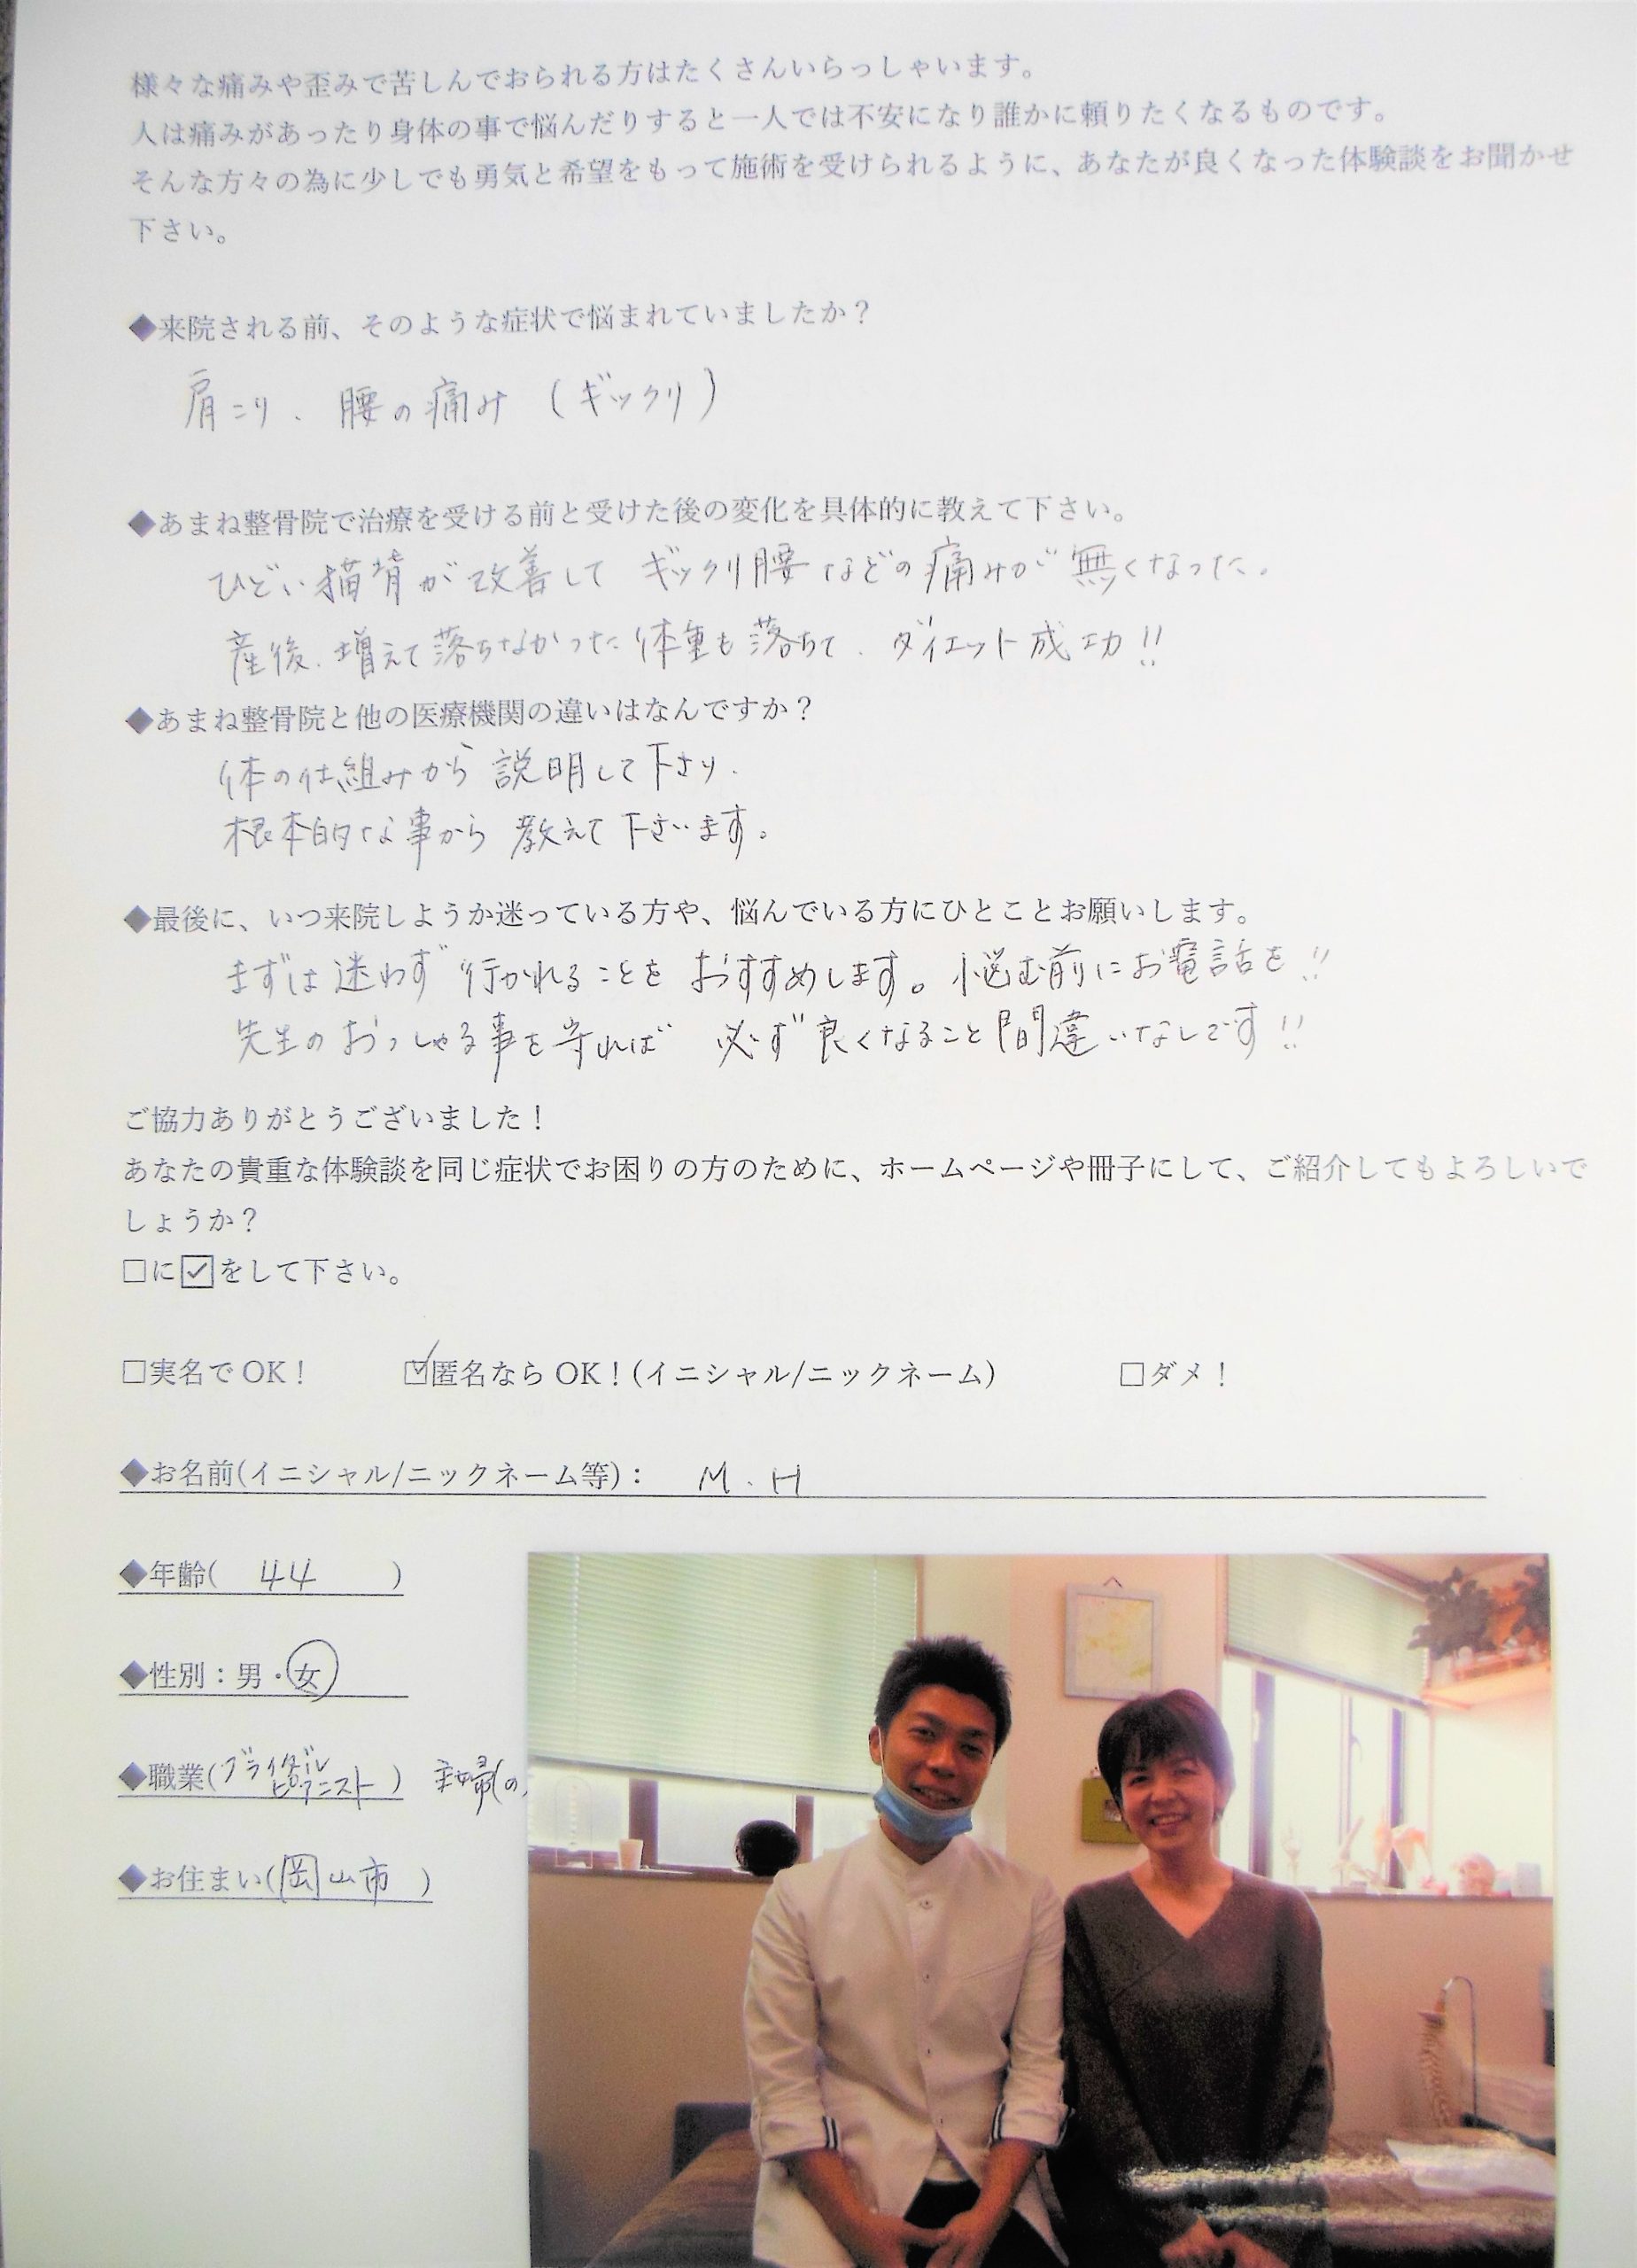 様々な痛みや歪みで苦しんでおられる方はたくさんいらっしゃいます。
人は痛みがあったり身体の事で悩んだりすると一人では不安になり誰かに頼りたくなるものです。
そんな方々の為に少しでも勇気と希望をもって施術を受けられるように、あなたが良くなった体験談をお聞かせ
下さい。
◆来院される前、そのような症状で悩まれていましたか？
肩こり、腰の痛み（ギックリ）
◆あまね整骨院で治療を受ける前と受けた後の変化を具体的に教えて下さい。
ひどい猫背が改善して ギックリ腰などの痛みが無くなった。
産後、増えて落ちなかった体重も落ちて、ダイエット成功!!
◆あまね整骨院と他の医療機関の違いはなんですか？
体の仕組みから説明して下さり、
根本的な事から教えて下さいます。
◆最後に、いつ来院しようか迷っている方や、悩んでいる方にひとことお願いします。
まずは迷わず行かれることをおすすめします。悩む前にお電話を!!
先生のおっしゃる事を守れば 必ず良くなること間違いなしです!!
ご協力ありがとうございました！
あなたの貴重な体験談を同じ症状でお困りの方のために、ホームページや冊子にして、ご紹介してもよろしいで
しょうか？
□に☑をして下さい。
□実名でOK！ ☑匿名ならOK！(イニシャル/ニックネーム) □ダメ！
◆お名前(イニシャル/ニックネーム等)： M.H
◆年齢( 44 )
◆性別：男・女
◆職業(ブライダルピアニスト) 主婦(の
◆お住まい(岡山市 )